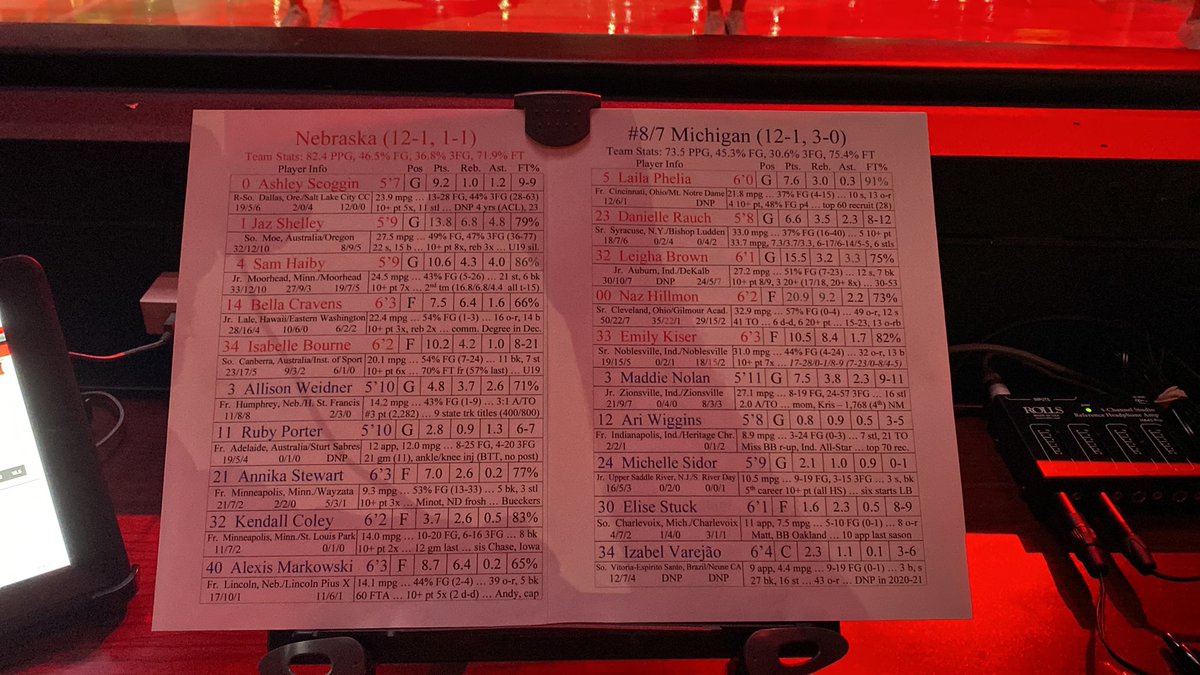 Nebraska (12-1, 1-1)
Team Stats: 82.4 PPG, 46.5% FG, 36.8% 3FG, 71.9% FT
Player Info Pos Pts. Reb. Ast. FT%
0 Ashley Scoggin 5'7 G 9.2 1.0 1.2 9-9
R-So. Dallas, Ore./Salt Lake City CC 23.9 mpg ... 13-28 FG, 44% 3FG (28-63)
19/5/6 2/0/4 12/0/0 10+ pt 5x, 11 stl ... DNP 4 yrs (ACL), 23
1 Jaz Shelley 5'9 G 13.8 6.8 4.8 79%
So. Moe, Australia/Oregon 27.5 mpg ... 49% FG, 47% 3FG (36-77)
32/12/10 8/9/5 22 s, 15 b ... 10+ pt 8x, reb 3x ... U19 sil.
4 Sam Haiby 5'9 G 10.6 4.3 4.0 86%
Jr. Moorhead, Minn./Moorhead 24.5 mpg ... 43% FG (5-26) ... 21 st, 6 bk
33/12/10 27/9/3 19/7/5 10+ pt 7x ... 2nd tm (16.8/6.8/4.4 all t-15)
14 Bella Cravens 6'3 F 7.5 6.4 1.6 66%
Jr. Laie, Hawaii/Eastern Washington 22.4 mpg ... 54% FG (1-3) ... 16 o-r, 14 b
28/16/4 10/6/0 6/2/2 10+ pt 3x, reb 2x ... comm. Degree in Dec.
34 Isabelle Bourne 6'2 F 10.2 4.2 1.0 8-21
So. Canberra, Australia/Inst. of Sport 20.1 mpg ... 54% FG (7-24) ... 11 bk, 7 st
23/17/5 9/3/2 6/1/0 10+ pt 6x ... 70% FT fr (57% last) ... U19
3 Allison Weidner 5'10 G 4.8 3.7 2.6 71%
Fr. Humphrey, Neb./H. St. Francis 14.2 mpg ... 43% FG (1-9) ... 3:1 A/TO
11/8/8 2/3/0 #3 pt (2,282) ... 9 state trk titles (400/800)
11 Ruby Porter 5'10 G 2.8 0.9 1.3 6-7
Fr. Adelaide, Australia/Sturt Sabres 12 app, 12.0 mpg ... 8-25 FG, 4-20 3FG
19/5/4 0/1/0 DNP 21 gm (11), ankle/knee inj (BTT, no post)
21 Annika Stewart 6'3 F 7.0 2.6 0.2 77%
Fr. Minneapolis, Minn./Wayzata 9.3 mpg ... 53% FG (13-33) ... 5 bk, 3 stl
21/7/2 2/2/0 5/3/1 10+ pt 3x ... Minot, ND frosh ... Bueckers
32 Kendall Coley 6'2 F 3.7 2.6 0.5 83%
Fr. Minneapolis, Minn./St. Louis Park 14.0 mpg ... 10-20 FG, 6-16 3FG ... 8 bk
11/7/2 0/1/0 10+ pt 2x ... 12 gm last ... sis Chase, Iowa
40 Alexis Markowski 6'3 F 8.7 6.4 0.2 65%
Fr. Lincoln, Neb./Lincoln Pius X 14.1 mpg ... 44% FG (2-4) ... 39 o-r, 5 bk
17/10/1 11/6/1 60 FTA ... 10+ pt 5x (2 d-d) ... Andy, cap
#8/7 Michigan (12-1, 3-0)
Team Stats: 73.5 PPG, 45.3% FG, 30.6% 3FG, 75.4% FT
Player Info Pos Pts. Reb. Ast. FT%
5 Laila Phelia 6'0 G 7.6 3.0 0.3 91%
Fr. Cincinnati, Ohio/Mt. Notre Dame 21.8 mpg ... 37% FG (4-15) ... 10 s, 13 o-r
12/6/1 DNP 4 10+ pt, 48% FG P4 ... top 60 recruit (28)
23 Danielle Rauch 5'8 G 6.6 3.5 2.3 8-12
Sr. Syracuse, N.Y./Bishop Ludden 33.0 mpg ... 37% FG (16-40) ... 5 10+ pt
18/7/6 0/2/4 0/4/2 33.7 mpg, 7.3/3.7/3.3, 6-17/6-14/5-5, 6 stls
32 Leigha Brown 6'1 G 15.5 3.2 3.3 75%
Jr. Auburn, Ind./DeKalb 27.2 mpg ... 51% FG (7-23) ... 12 s, 7 bk
30/10/7 DNP 24/5/7 10+ pt 8/9, 3 20+ (17/18, 20+ 8x) ... 30-53
00 Naz Hillmon 6'2 F 20.9 9.2 2.2 73%
Sr. Cleveland, Ohio/Gilmour Acad. 32.9 mpg ... 57% FG (0-4) ... 49 o-r, 12 s
50/22/7 35/22/1 29/15/2 41 TO ... 6 d-d, 6 20+ pt ... 15-23, 13 o-rb
33 Emily Kiser 6'3 F 10.5 8.4 1.7 82%
Sr. Noblesville, Ind./Noblesville 31.0 mpg ... 44% FG (4-24) ... 32 o-r, 13 b
19/15/5 0/2/1 18/15/2 10+ pt 7x ... 17-28/0-1/8-9 (7-23/0-8/4-5)
3 Maddie Nolan 5'11 G 7.5 3.8 2.3 9-11
Jr. Zionsville, Ind./Zionsville 27.1 mpg ... 8-19 FG, 24-57 3FG ... 16 stl
21/9/7 0/4/0 8/3/3 2.0 A/TO ... mom, Kris – 1,768 (4th) NM
12 Ari Wiggins 5'8 G 0.8 0.9 0.5 3-5
Fr. Indianapolis, Ind./Heritage Chr. 8.9 mpg ... 3-24 FG (0-3) ... 7 stl, 21 TO
2/2/1 0/1/2 Miss BB r-up, Ind. All-Star ... top 70 rec.
24 Michelle Sidor 5'9 G 2.1 1.0 0.9 0-1
Jr. Upper Saddle River, N.J./S. River Day 10.5 mpg ... 9-19 FG, 3-15 3FG ... 3 s, bk
16/5/3 0/2/0 0/0/1 5th career 10+ pt (all HS) ... six starts LB
30 Elise Stuck 6'1 F 1.6 2.3 0.5 8-9
So. Charlevoix, Mich./Charlevoix 11 app, 7.5 mpg ... 5-10 FG (0-1) ... 8 o-r
4/7/2 1/4/0 3/1/1 Matt, BB Oakland ... 10 app last season
34 Izabel Varejão 6'4 C 2.3 1.1 0.1 3-6
So. Vitoria-Espirito Santo, Brazil/Neuse CA 9 app, 4.4 mpg ... 9-19 FG (0-1) ... 3 b, s
12/7/4 DNP DNP 27 bk, 16 st ... 43 o-r ... DNP in 2020-21
INPUTS
ROLLS
4-Channel Studio
Reference Headphone Amp